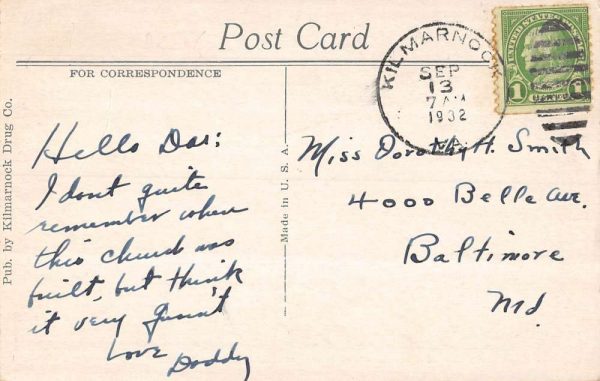 Post Card
FOR CORRESPONDENCE
Pub. by Kilmarnock Drug Co.
Made in U. S. A.
KILMARNOCK
SEP
13
7 AM
1932
VA.
UNITED STATES POSTAGE
1 1
Hello Dar:
I dont quite
remember when
this church was
built, but think
it very
Love Daddy
Miss Dorothy H. Smith
4000 Belle Ave.
Baltimore
Md.